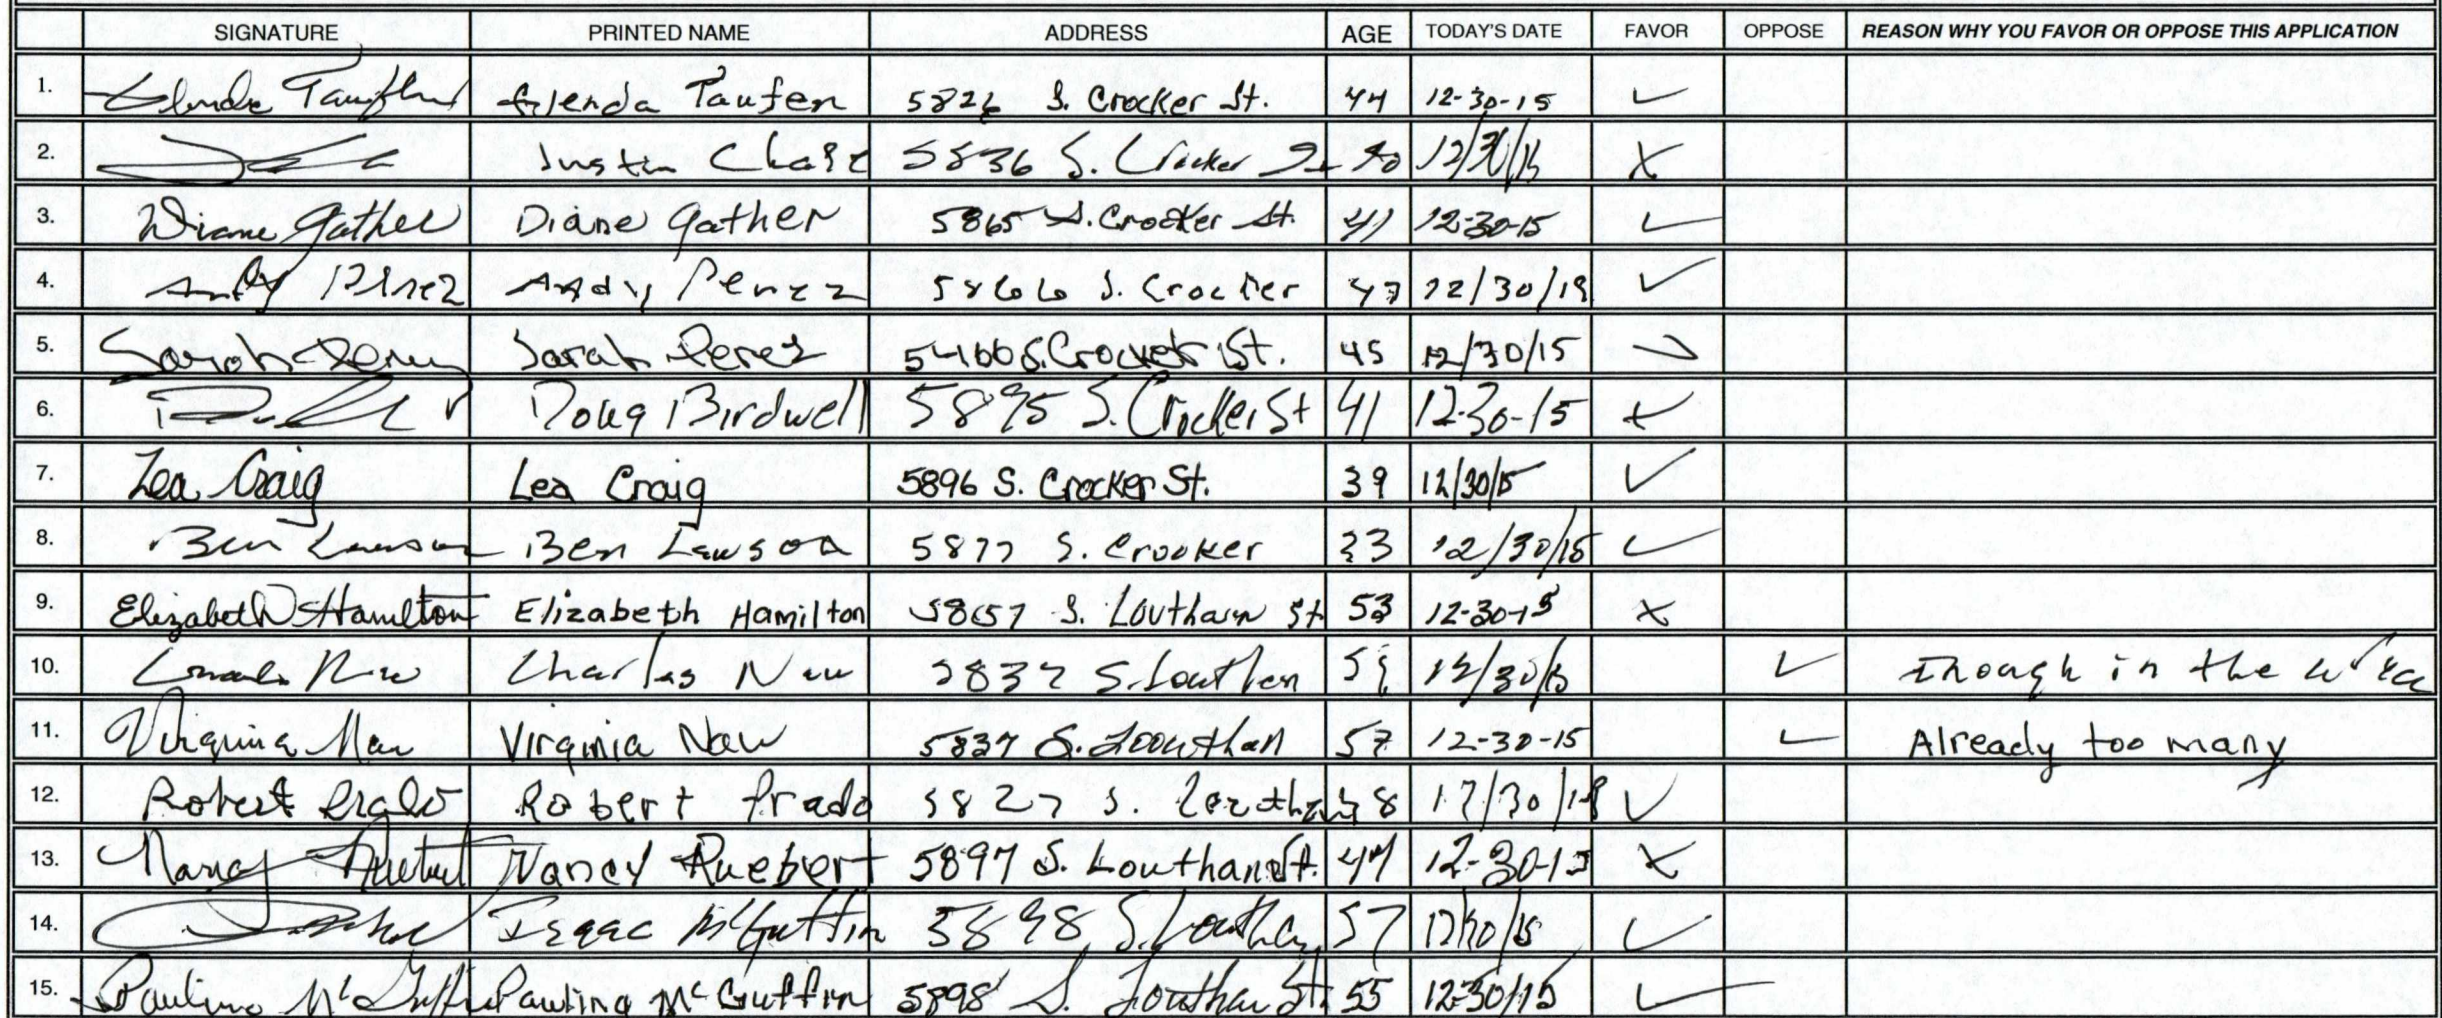 SIGNATURE PRINTED NAME ADDRESS AGE TODAY'S DATE FAVOR OPPOSE REASON WHY YOU FAVOR OR OPPOSE THIS APPLICATION
1. Glenda Taufen 5826 S. Crocker St. 44 12-30-15
2. Justin Chase 5836 S. Crocker 12/30/15
3. Diane Gather Diane Gather 5865 S. Crocker St. 41 12-30-15
4. Andy Perez Andy Perez 5866 S. Crocker 12/30/15
5. Sarah Perez Sarah Perez S. Crocker St. 45 12/30/15
6. Doug Birdwell 5895 S. Crocker St 41 12-30-15
7. Lea Craig Lea Craig 5896 S. Crocker St. 39 12/30/15
8. Ben Lawson Ben Lawson 5877 S. Crocker 33 12/30/15
9. Elizabeth Hamilton Elizabeth Hamilton 5857 S. Louthan St 53 12-30-15
10. Charles New 5837 S. Louthen 12/30/15 Enough in the
11. Virginia New Virginia New 5837 S. Loouthan 57 12-30-15 Already too many
12. Robert Prado Robert Prado 5827 S. 12/30/15
13. Nancy Ruebert Nancy Ruebert 5897 S. Louthan St. 12-30-15
14. Isaac McGuffin 5898 S. Louthan 57
15. Paulina McGuffin Paulina McGuffin 5898 S. Louthan St. 55 12-30/15